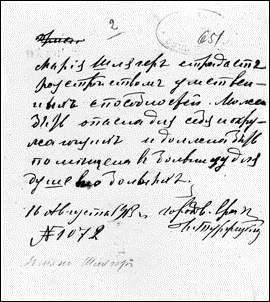 2
651
Марія страдаетъ
разстройствомъ умствен-
ныхъ способностей. Можетъ
быть опасна для себя и окру-
жающихъ и должна быть
помѣщена въ больницу для
душевно больныхъ.
16 Августа Городов. Врачъ
№ 1072